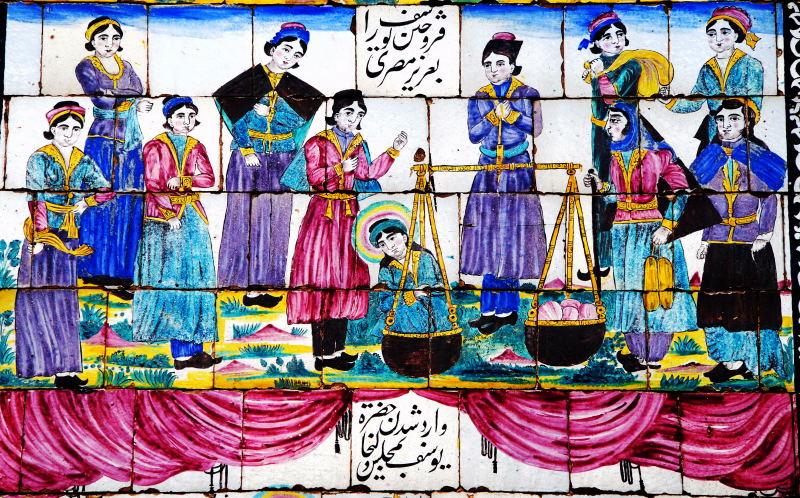 فروختن یوسف را
بعزیز مصری
وارد شدن حضرة
یوسف بمجلس زلیخا